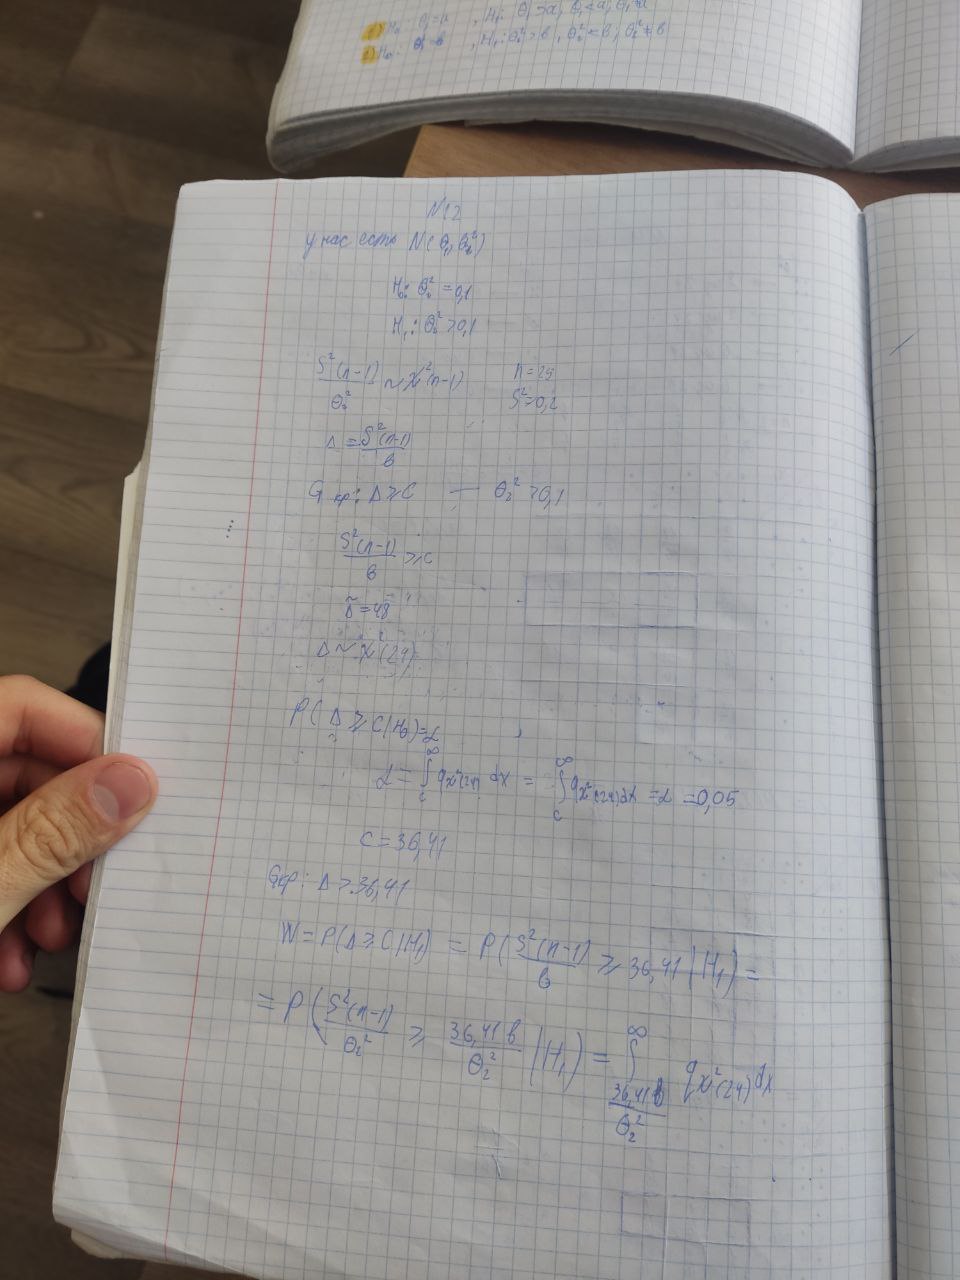 1) H₀: θ₁=a , H₁: θ₁>a, θ₁<a, θ₁≠a
2) H₀: θ₂²=b , H₁: θ₂²>b, θ₂²<b, θ₂²≠b
N12
у нас есть N(θ₁, θ₂²)
H₀: θ₂² = 0,1
H₁: θ₂² > 0,1
S²(n-1)/θ₂² ~ χ²(n-1) n=25
S²=0,2
Δ = S²(n-1)/b
Gкр: Δ ≥ C — θ₂² > 0,1
S²(n-1)/b ≥ C
Δ̃ = 48
Δ ~ χ²(24)
P(Δ ≥ C|H₀) = α
α = ∫_c^∞ q χ²(24) dx = ∫_c^∞ q χ²(24) dx = α = 0,05
C = 36,41
Gкр: Δ ≥ 36,41
W = P(Δ ≥ C|H₁) = P(S²(n-1)/b ≥ 36,41 | H₁) =
= P(S²(n-1)/θ₂² ≥ 36,41 b/θ₂² | H₁) = ∫_{36,41 b/θ₂²}^∞ q χ²(24) dx